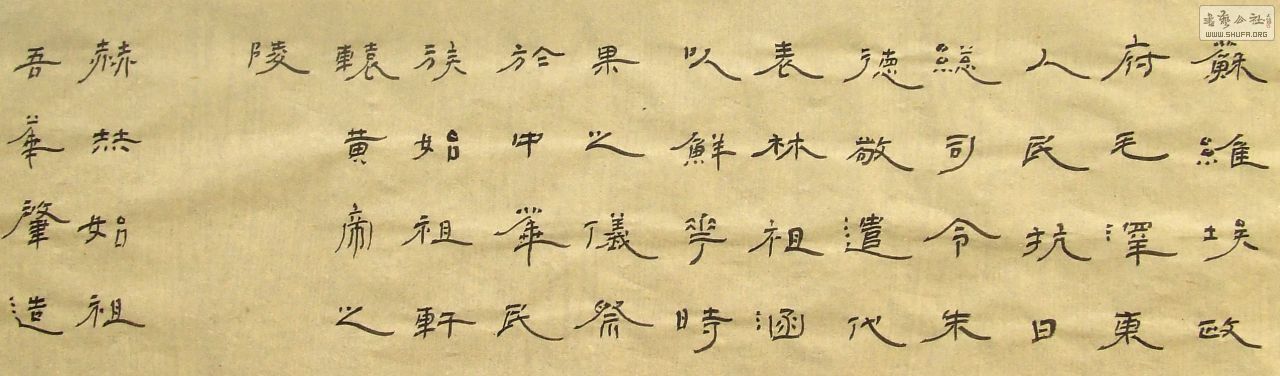 蘇維埃政
府毛澤東
人民抗日
總司令朱
德敬遣代
表林祖涵
以鮮花時
果之儀祭
於中華民
族始祖軒
轅黃帝之
陵
赫赫始祖
吾華肇造
書藝公社
WWW.SHUFA.ORG